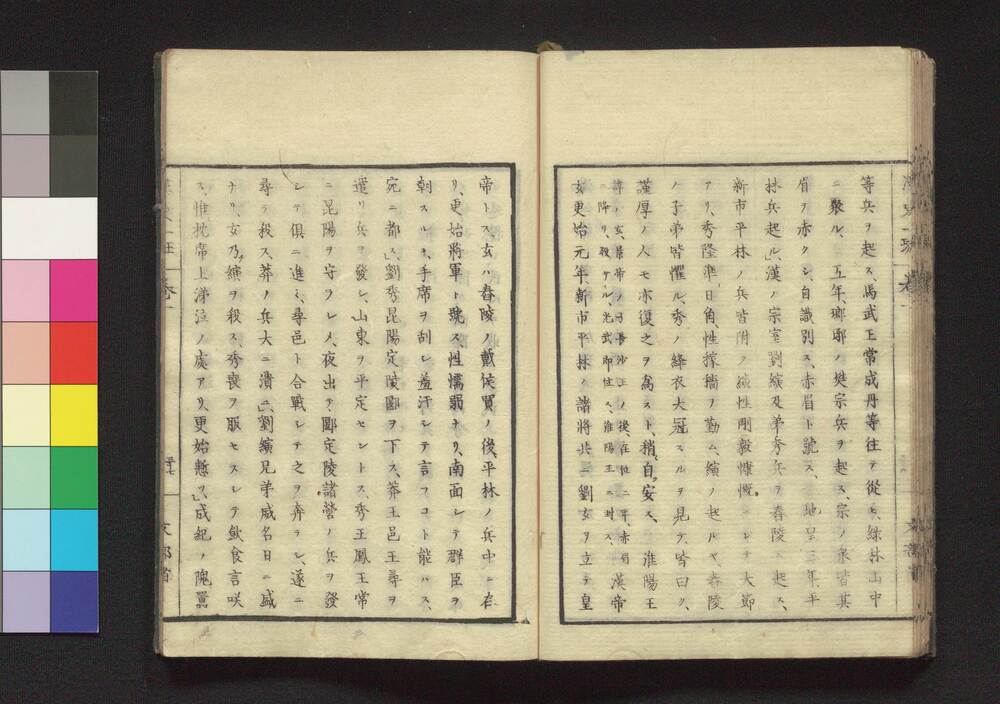 等兵ヲ起ス、馬武王常成丹等往テ從ヒ、緑林山中
ニ聚ル、五年、瑯琊ノ樊宗兵ヲ起ス、宗ノ衆皆其
眉ヲ赤クシ自識別ス、赤眉ト號ス、地皇三年、平
林兵起ル、漢ノ宗室劉縯及弟秀兵ヲ舂陵ニ起ス、
新市平林ノ兵皆附ク縯性剛毅慷慨ニシテ大節
アリ、秀隆準日角、性稼穡ヲ勤ム、縯ノ起ルヤ、舂陵
ノ子弟皆懼ル、秀ノ絳衣大冠スルヲ見テ、皆曰ク、
謹厚ノ人モ亦復之ヲ為スト、稍自安ス、淮陽王
諱ハ玄、景帝ノ子長沙王ノ後在位二年、赤眉
ニ降リ、殺サル、光武即位ス、淮陽王ニ封ス、
漢帝
玄更始元年、新市平林ノ諸將共ニ劉玄ヲ立テ皇
帝トス玄ハ舂陵ノ戴侯買ノ後、平林ノ兵中ニ在
リ、更始將軍ト號ス性懦弱ナリ、南面シテ群臣ヲ
朝スルキ、手席ヲ刮シ羞汗シテ言フコト能ハス、
宛ニ都ス、劉秀昆陽定陵郾ヲ下ス、莽王邑王尋ヲ
遣リ兵ヲ發シ、山東ヲ平定セントス、秀王鳳王常
ニ昆陽ヲ守ラシメ、夜出テ、郾定陵諸營ノ兵ヲ發
シテ俱ニ進ミ、尋邑ト合戰シテ之ヲ奔ラシ、遂ニ
尋ヲ殺ス、莽ノ兵大ニ潰ユ、劉縯兄弟威名日ニ盛
ナリ、玄乃縯ヲ殺ス、秀喪ヲ服セスシテ飲食言咲
ス、惟枕席上涕泣ノ處アリ、更始慙ツ、成紀ノ隗囂
三十七
文部省